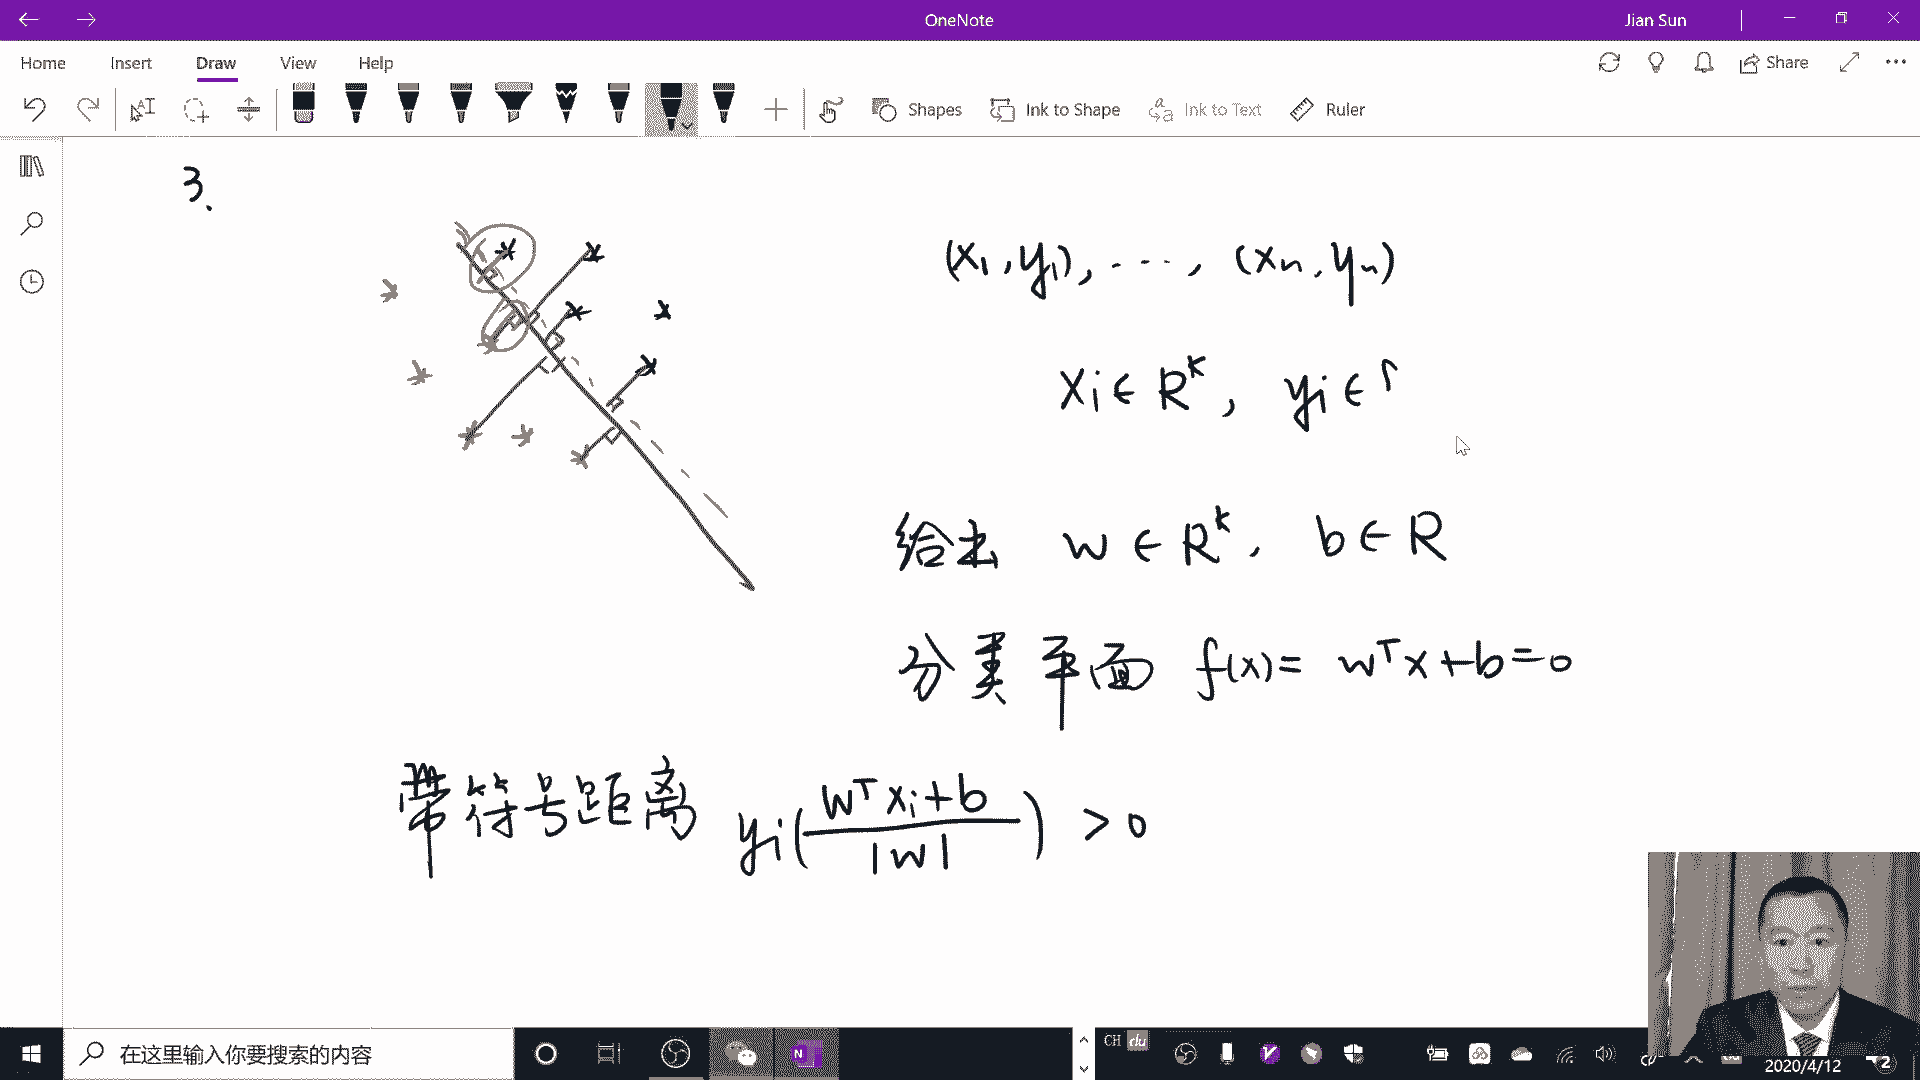 OneNote
Jian Sun
Home Insert Draw View Help
Share
Shapes Ink to Shape Ink to Text Ruler
3.
(x₁,y₁), ..., (xₙ,yₙ)
xᵢ∈Rᵏ, yᵢ∈
给出 w∈Rᵏ, b∈R
分类平面 f(x)= wᵀx+b=0
带符号距离 yᵢ(wᵀxᵢ+b / |w|) >0
在这里输入你要搜索的内容
CH du
N
2020/4/12
2